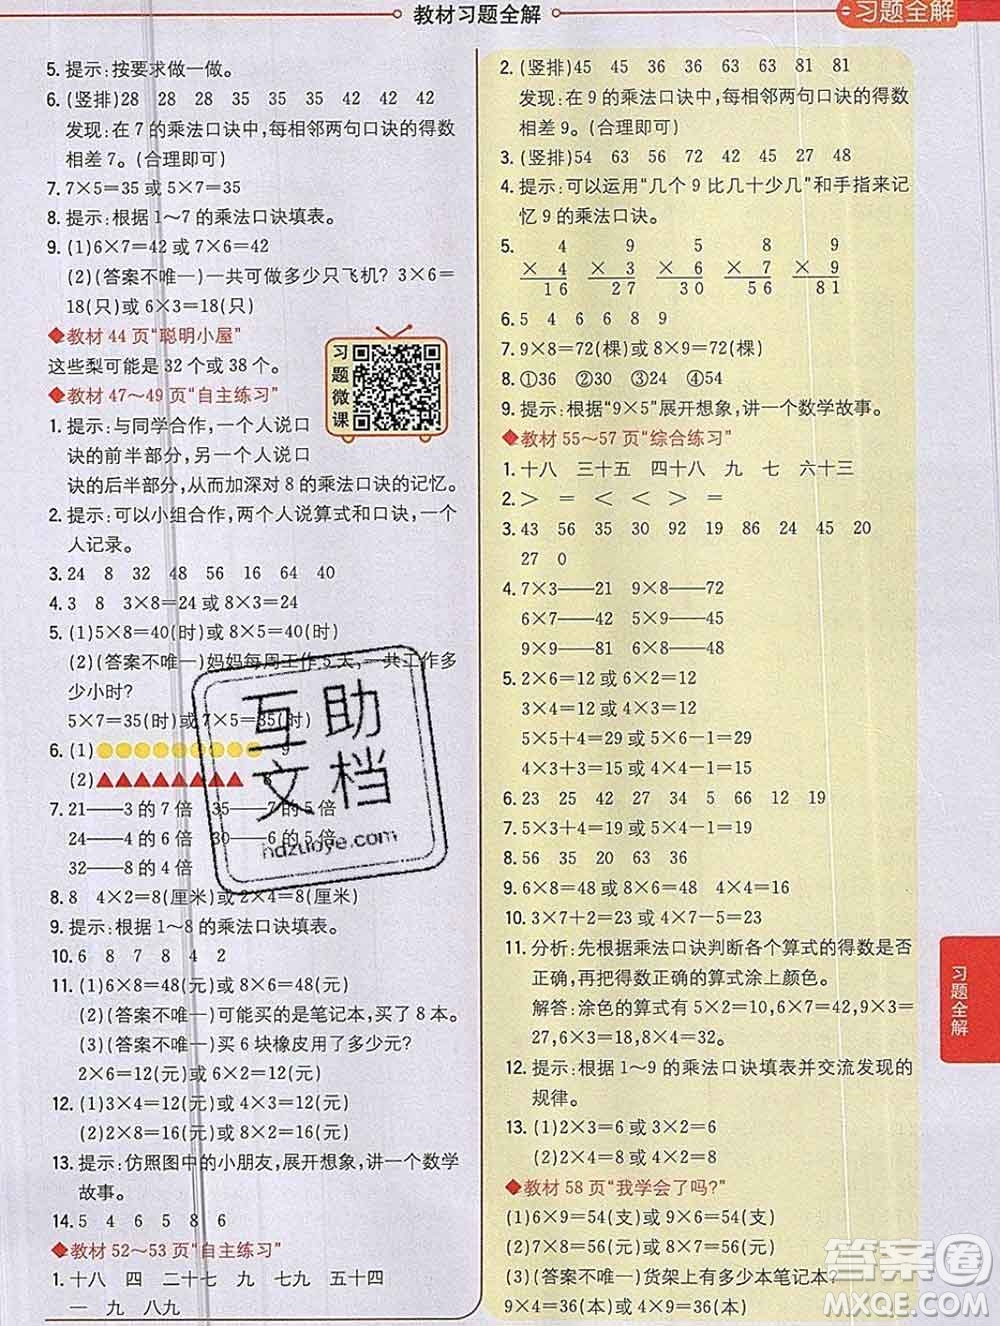 教材习题全解
习题全解
5. 提示:按要求做一做。
6. (竖排)28 28 28 35 35 35 42 42 42
发现:在 7 的乘法口诀中,每相邻两句口诀的得数
相差 7。(合理即可)
7. 7×5=35 或 5×7=35
8. 提示:根据 1~7 的乘法口诀填表。
9. (1)6×7=42 或 7×6=42
(2)(答案不唯一)一共可做多少只飞机? 3×6=
18(只)或 6×3=18(只)
◆教材 44 页“聪明小屋”
这些梨可能是 32 个或 38 个。
◆教材 47~49 页“自主练习”
习题微课
1. 提示:与同学合作,一个人说口
诀的前半部分,另一个人说口
诀的后半部分,从而加深对 8 的乘法口诀的记忆。
2. 提示:可以小组合作,两个人说算式和口诀,一个
人记录。
3. 24 8 32 48 56 16 64 40
4. 3 8 3×8=24 或 8×3=24
5. (1)5×8=40(时)或 8×5=40(时)
(2)(答案不唯一)妈妈每周工作 5 天,一共工作多
少小时?
5×7=35(时)或 7×5=35(时)
6. (1) 9
(2)
7. 21——3 的 7 倍 35——7 的 5 倍
24——4 的 6 倍 30——6 的 5 倍
32——8 的 4 倍
8. 8 4×2=8(厘米)或 2×4=8(厘米)
9. 提示:根据 1~8 的乘法口诀填表。
10. 6 8 7 8 4 2
11. (1)6×8=48(元)或 8×6=48(元)
(2)(答案不唯一)可能买的是笔记本,买了 8 本。
(3)(答案不唯一)买 6 块橡皮用了多少元?
2×6=12(元)或 6×2=12(元)
12. (1)3×4=12(元)或 4×3=12(元)
(2)2×8=16(元)或 8×2=16(元)
13. 提示:仿照图中的小朋友,展开想象,讲一个数学
故事。
14. 5 4 6 5 8 6
◆教材 52~53 页“自主练习”
1. 十八 四 二十七 九 七九 五十四
一 九 八九
2. (竖排)45 45 36 36 63 63 81 81
发现:在 9 的乘法口诀中,每相邻两句口诀的得数
相差 9。(合理即可)
3. (竖排)54 63 56 72 45 27 48
4. 提示:可以运用“几个 9 比几十少几”和手指来记
忆 9 的乘法口诀。
5. 4 9 5 8 9
× 4 × 3 × 6 × 7 × 9
16 27 30 56 81
6. 5 4 6 6 8 9
7. 9×8=72(棵)或 8×9=72(棵)
8. ①36 ②30 ③24 ④54
9. 提示:根据“9×5”展开想象,讲一个数学故事。
◆教材 55~57 页“综合练习”
1. 十八 三十五 四十八 九 七 六十三
2. > = < < > =
3. 43 56 35 30 92 19 86 24 45 20
27 0
4. 7×3——21 9×8——72
6×7——42 5×9——45
9×9——81 6×8——48
5. 2×5+2=12 或 2×6=12
3×7+3=24 或 3×8=24
5×5+4=29 或 5×6-1=29
4×3+3=15 或 4×4-1=15
6. 23 25 42 27 66 12 19
7. 5×7=35(个)或 7×5=35(个)
8. 56 35 20 63 36
9. 6×8=48 或 8×6=48 4×4=16
10. 3×7+2=23 或 4×7-5=23
11. 分析:先根据乘法口诀判断各个算式的得数是否
正确,再把得数正确的算式涂上颜色。
解答:涂色的算式有 5×2=10,6×7=42,9×3=
27,6×6=36,8×4=32,8×8=64。
12. 提示:根据 1~9 的乘法口诀填表并交流发现的
规律。
13. (1)2×3=6 或 3×2=6
(2)2×4=8 或 4×2=8
◆教材 58 页“我学会了吗?”
(1)6×9=54(支)或 9×6=54(支)
(2)7×8=56(元)或 8×7=56(元)
(3)(答案不唯一)货架上有多少本笔记本?
9×4=36(本)或 4×9=36(本)
习题全解
互助文档
hdzuoye.com
答案圈
MXQE.COM